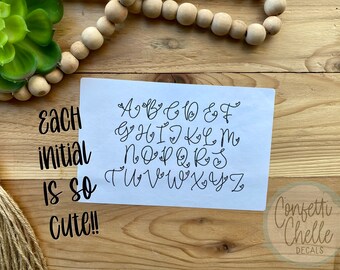 EACH
iNiTiAL
IS SO
CUTE!!
A B C D E F
G H I J K L M
N O P Q R S
T U V W X Y Z
Confetti
Chelle
DECALS